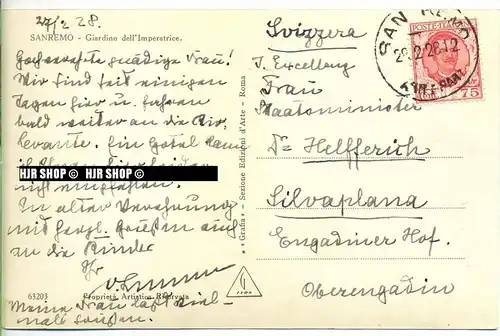 27/2 28.
SANREMO - Giardino dell'Imperatrice.
Hochverehrte gnädige Frau!
Wir sind seit einigen
Tagen hier u. fahren
bald weiter an die Riv.
Levante. Ein Hotel kann
ich Ihnen hier leider
nicht empfehlen.
In alter Verehrung
mit herzl. Grüßen auch
an die Kinder
Ihr
Meine Frau läßt viel-
mals grüßen.
63203
Proprietà Artistica Riservata
HJR SHOP © HJR SHOP ©
"Grafia" - Sezione Edizioni d'Arte - Roma
Svizzera
I. Excellenz
Frau
Staatsminister
Dr Helfferich
Silvaplana
Engadiner Hof
Oberengadin
SAN REMO
28.2.28.12
POSTE ITALIANE
75